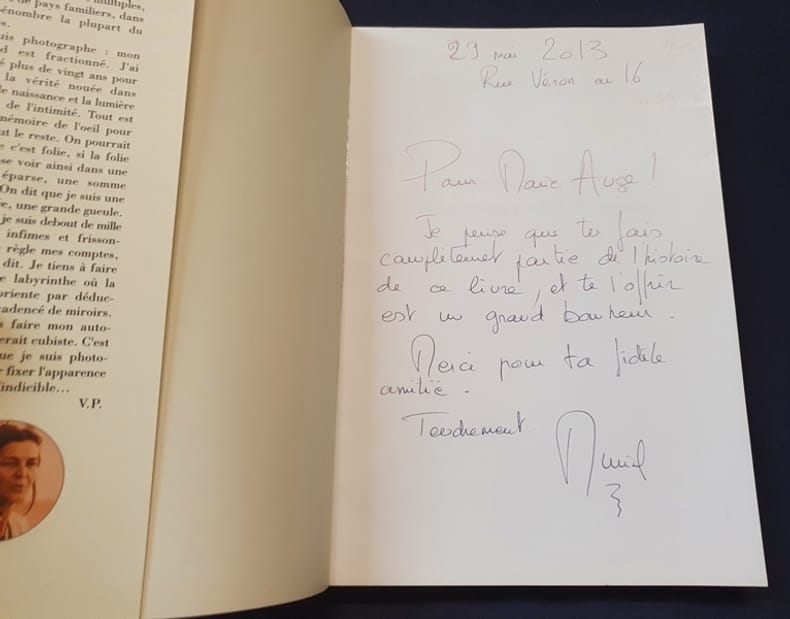 multiples,
de pays familiers, dans
dénombre la plupart du
uis photographe : mon
d est fractionné. J'ai
é plus de vingt ans pour
la vérité nouée dans
e naissance et la lumière
de l'intimité. Tout est
mémoire de l'oeil pour
ut le reste. On pourrait
e c'est folie, si la folie
se voir ainsi dans une
éparse, une somme
On dit que je suis une
ie, une grande gueule.
je suis debout de mille
infimes et frisson-
règle mes comptes,
dit. Je tiens à faire
e labyrinthe où la
oriente par déduc-
cadencé de miroirs.
s faire mon auto-
erait cubiste. C'est
ue je suis photo-
r fixer l'apparence
'indicible...
V.P.
29 mai 2013
Rue Véron au 16
Pour Marie Auge !
Je pense que tu fais
complètement partie de l'histoire
de ce livre, et te l'offrir
est un grand bonheur.
Merci pour ta fidèle
amitié.
Tendrement.
Muriel